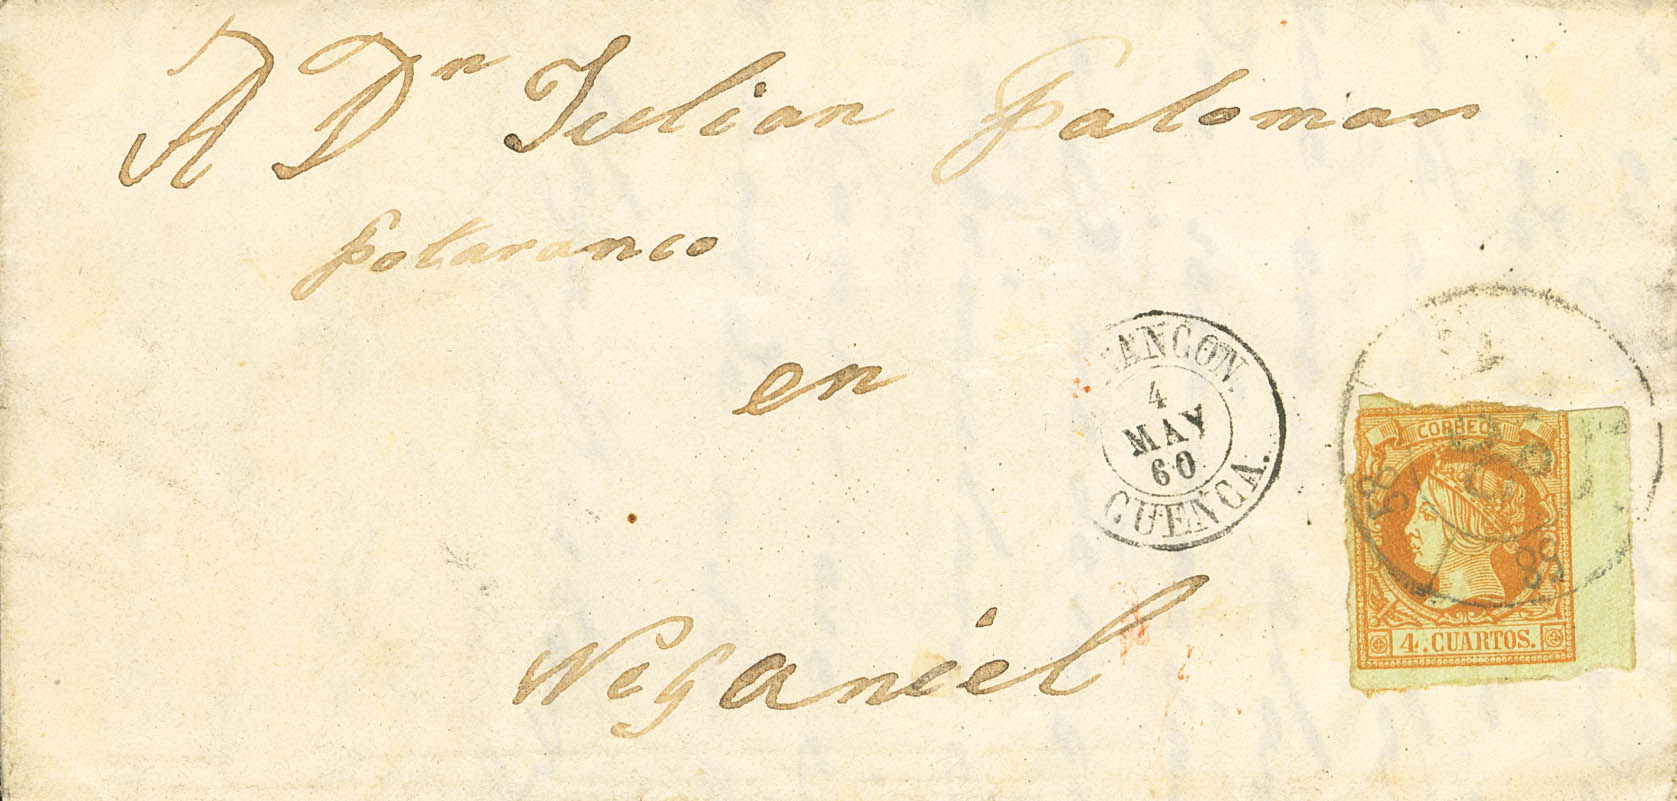 A Dn Julian Palomar
Potaranco
en
Weganiel
ANCON.
4
MAY
60
CUENCA.
CORREOS
4 CUARTOS.